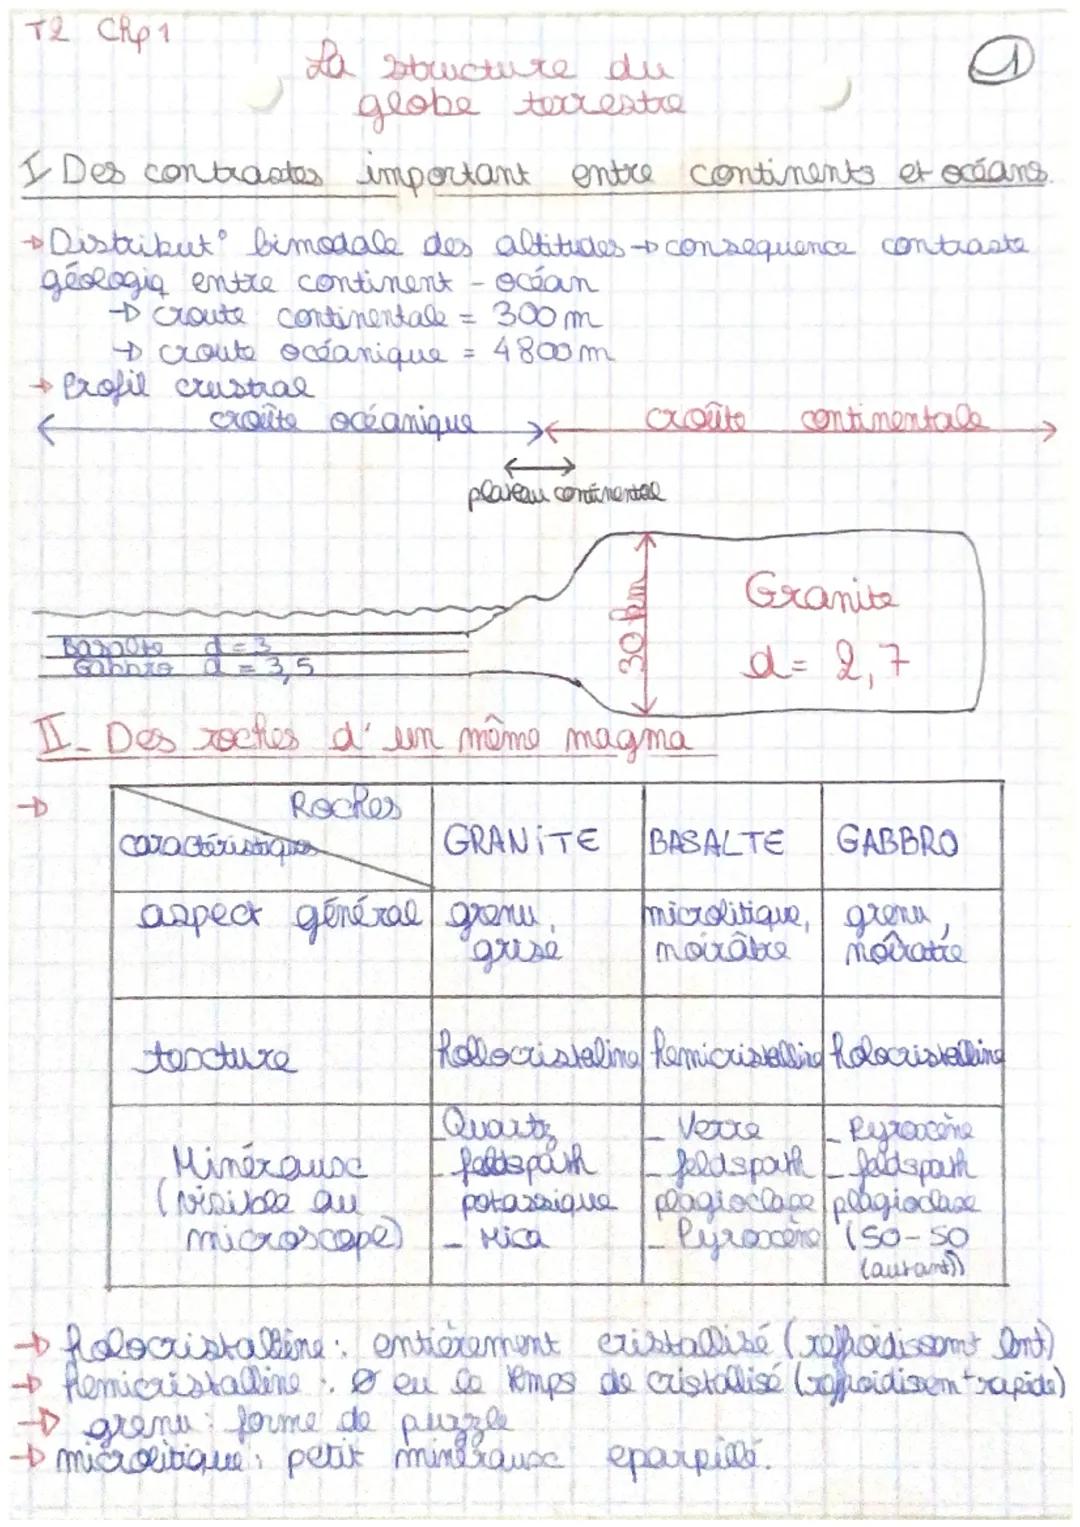 T2 Chp 1
1
La structure du
globe terrestre
I Des contrastes important entre continents et océans.
→ Distribut° bimodale des altitudes → consequence contraste
géologiq entre continent - océan
→ croute continentale = 300 m
→ croute océanique = 4800 m
→ Profil crustral
croûte océanique croûte continentale
plateau continental
30 km
Granite
d = 2,7
Basalte d = 3
Gabbro d = 3,5
II - Des roches d'un même magma
→ Roches
caractéristiques GRANiTE BASALTE GABBRO
aspect général grenu, microlitique, grenu,
grise noirâtre noiratre
texture hollocristaline hemicristalline holocristalline
Minéraux - Quartz - Verre - Pyroxène
(visible au - feldspath - feldspath - feldspath
microscope) potassique plagioclase plagioclase
- Mica - Pyroxène (50-50
(autant))
→ holocristalline : entièrement cristallisé (refroidissement lent)
→ hemicristalline : Ø eu le temps de cristallisé (refroidissement rapide)
→ grenu : forme de puzzle
→ microlitique : petit minéraux eparpillé.